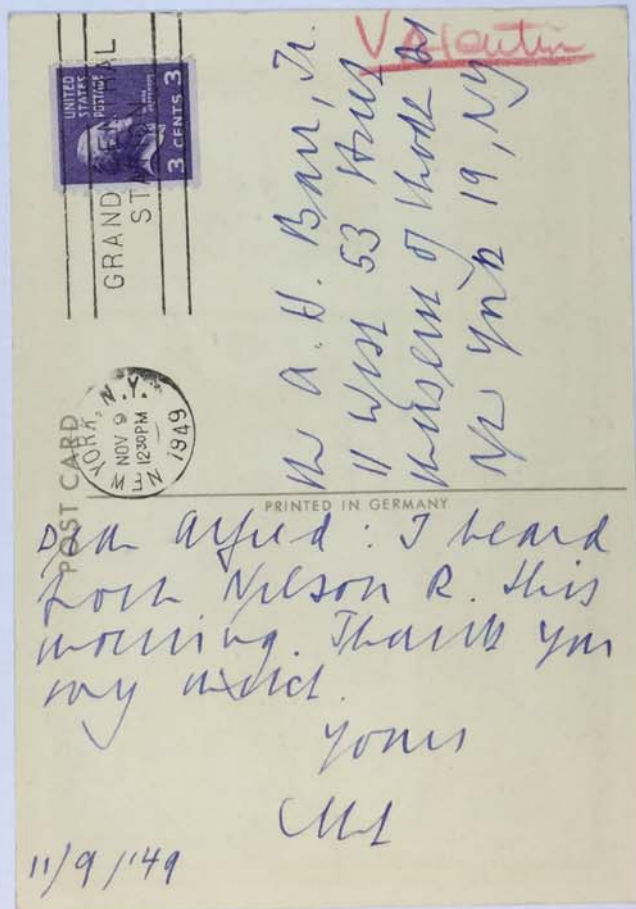 Valentin
UNITED
STATES
POSTAGE
3 CENTS 3
GRAND CENTRAL
STATION
NEW YORK, N.Y.
NOV 9
1230PM
1949
POST CARD
Mr A. H. Barr, Jr.
11 West 53 Street
Museum of Modern Art
New York 19, NY
PRINTED IN GERMANY
Dear Alfred: I heard
from Nelson R. this
morning. Thank you
very much.
Yours
11/9/'49